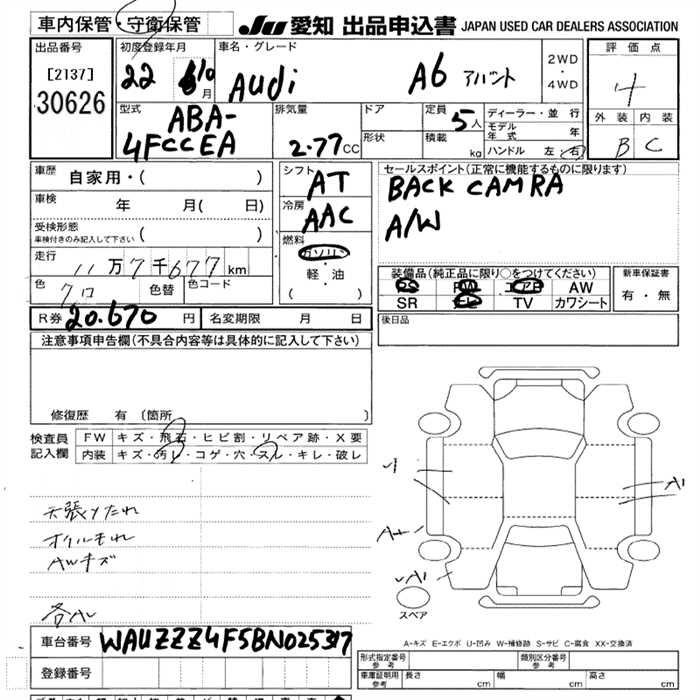 車内保管・守衛保管
JU 愛知 出品申込書 JAPAN USED CAR DEALERS ASSOCIATION
出品番号
[2137]
30626
初度登録年月
22 10 月
車名・グレード
Audi A6 アバント
2WD
・
4WD
評価点
4
外装 内装
B C
型式
ABA-
4FCCEA
排気量
2.77CC
ドア
形状
定員
5人
積載
kg
ディーラー・並行
モデル年式 年
ハンドル 左・右
車歴
自家用・( )
車検
年 月( 日)
受検形態
車検付きのみ記入して下さい ( )
走行
11万7千677km
色
クロ
色替
色コード
シフト
AT
冷房
AAC
燃料
ガソリン
・
軽・油
( )
セールスポイント(正常に機能するものに限ります)
BACK CAMRA
A/W
装備品(純正品に限り○をつけてください)
PS PW エアB AW
SR TV カワシート
新車保証書
有・無
R券 20.670 円
名変期限 月 日
後日品
注意事項申告欄(不具合内容等は具体的に記入して下さい)
修復歴 有(箇所 )
検査員
記入欄
FW キズ・飛石・ヒビ割・リペア跡・X要
内装 キズ・汚レ・コゲ・穴・スレ・キレ・破レ
天張りたれ
オイルもれ
AWキズ
A1
A1
スペア
A-キズ E-エクボ U-凹み W-補修跡 S-サビ C-腐食 XX-交換済
車台番号 WAUZZZ4F5BN025317
登録番号
形式指定番号
参考
類別区分番号
参考
車庫証明用
参考
長さ cm
幅 cm
高さ cm